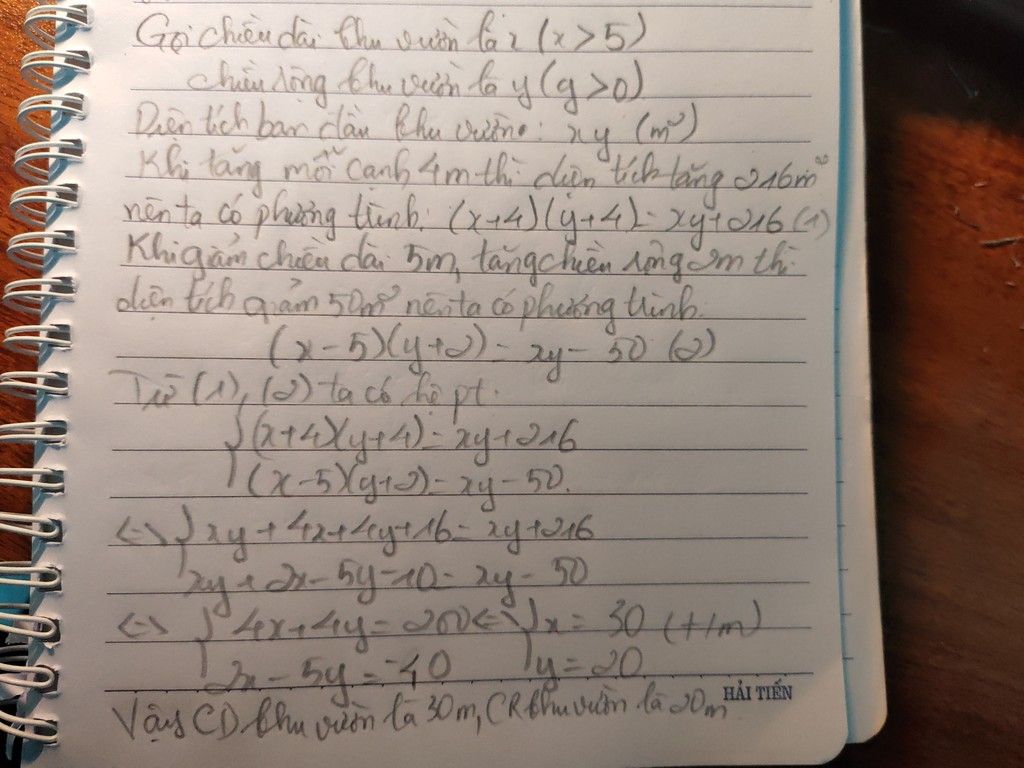 Gọi chiều dài khu vườn là x (x > 5)
chiều rộng khu vườn là y (y > 0)
Diện tích ban đầu khu vườn: xy (m²)
Khi tăng mỗi cạnh 4m thì diện tích tăng 216m²
nên ta có phương trình: (x+4)(y+4) = xy+216 (1)
Khi giảm chiều dài 5m, tăng chiều rộng 2m thì
diện tích giảm 50m² nên ta có phương trình.
(x-5)(y+2) = xy - 50 (2)
Từ (1), (2) ta có hệ pt:
{ (x+4)(y+4) = xy+216
(x-5)(y+2) = xy-50.
<=> { xy + 4x+4y+16 = xy+216
xy + 2x - 5y - 10 = xy - 50
<=> { 4x+4y = 200 <=> { x = 30 (t/m)
2x - 5y = -40 y = 20
HẢI TIẾN
Vậy CD khu vườn là 30m, CR khu vườn là 20m